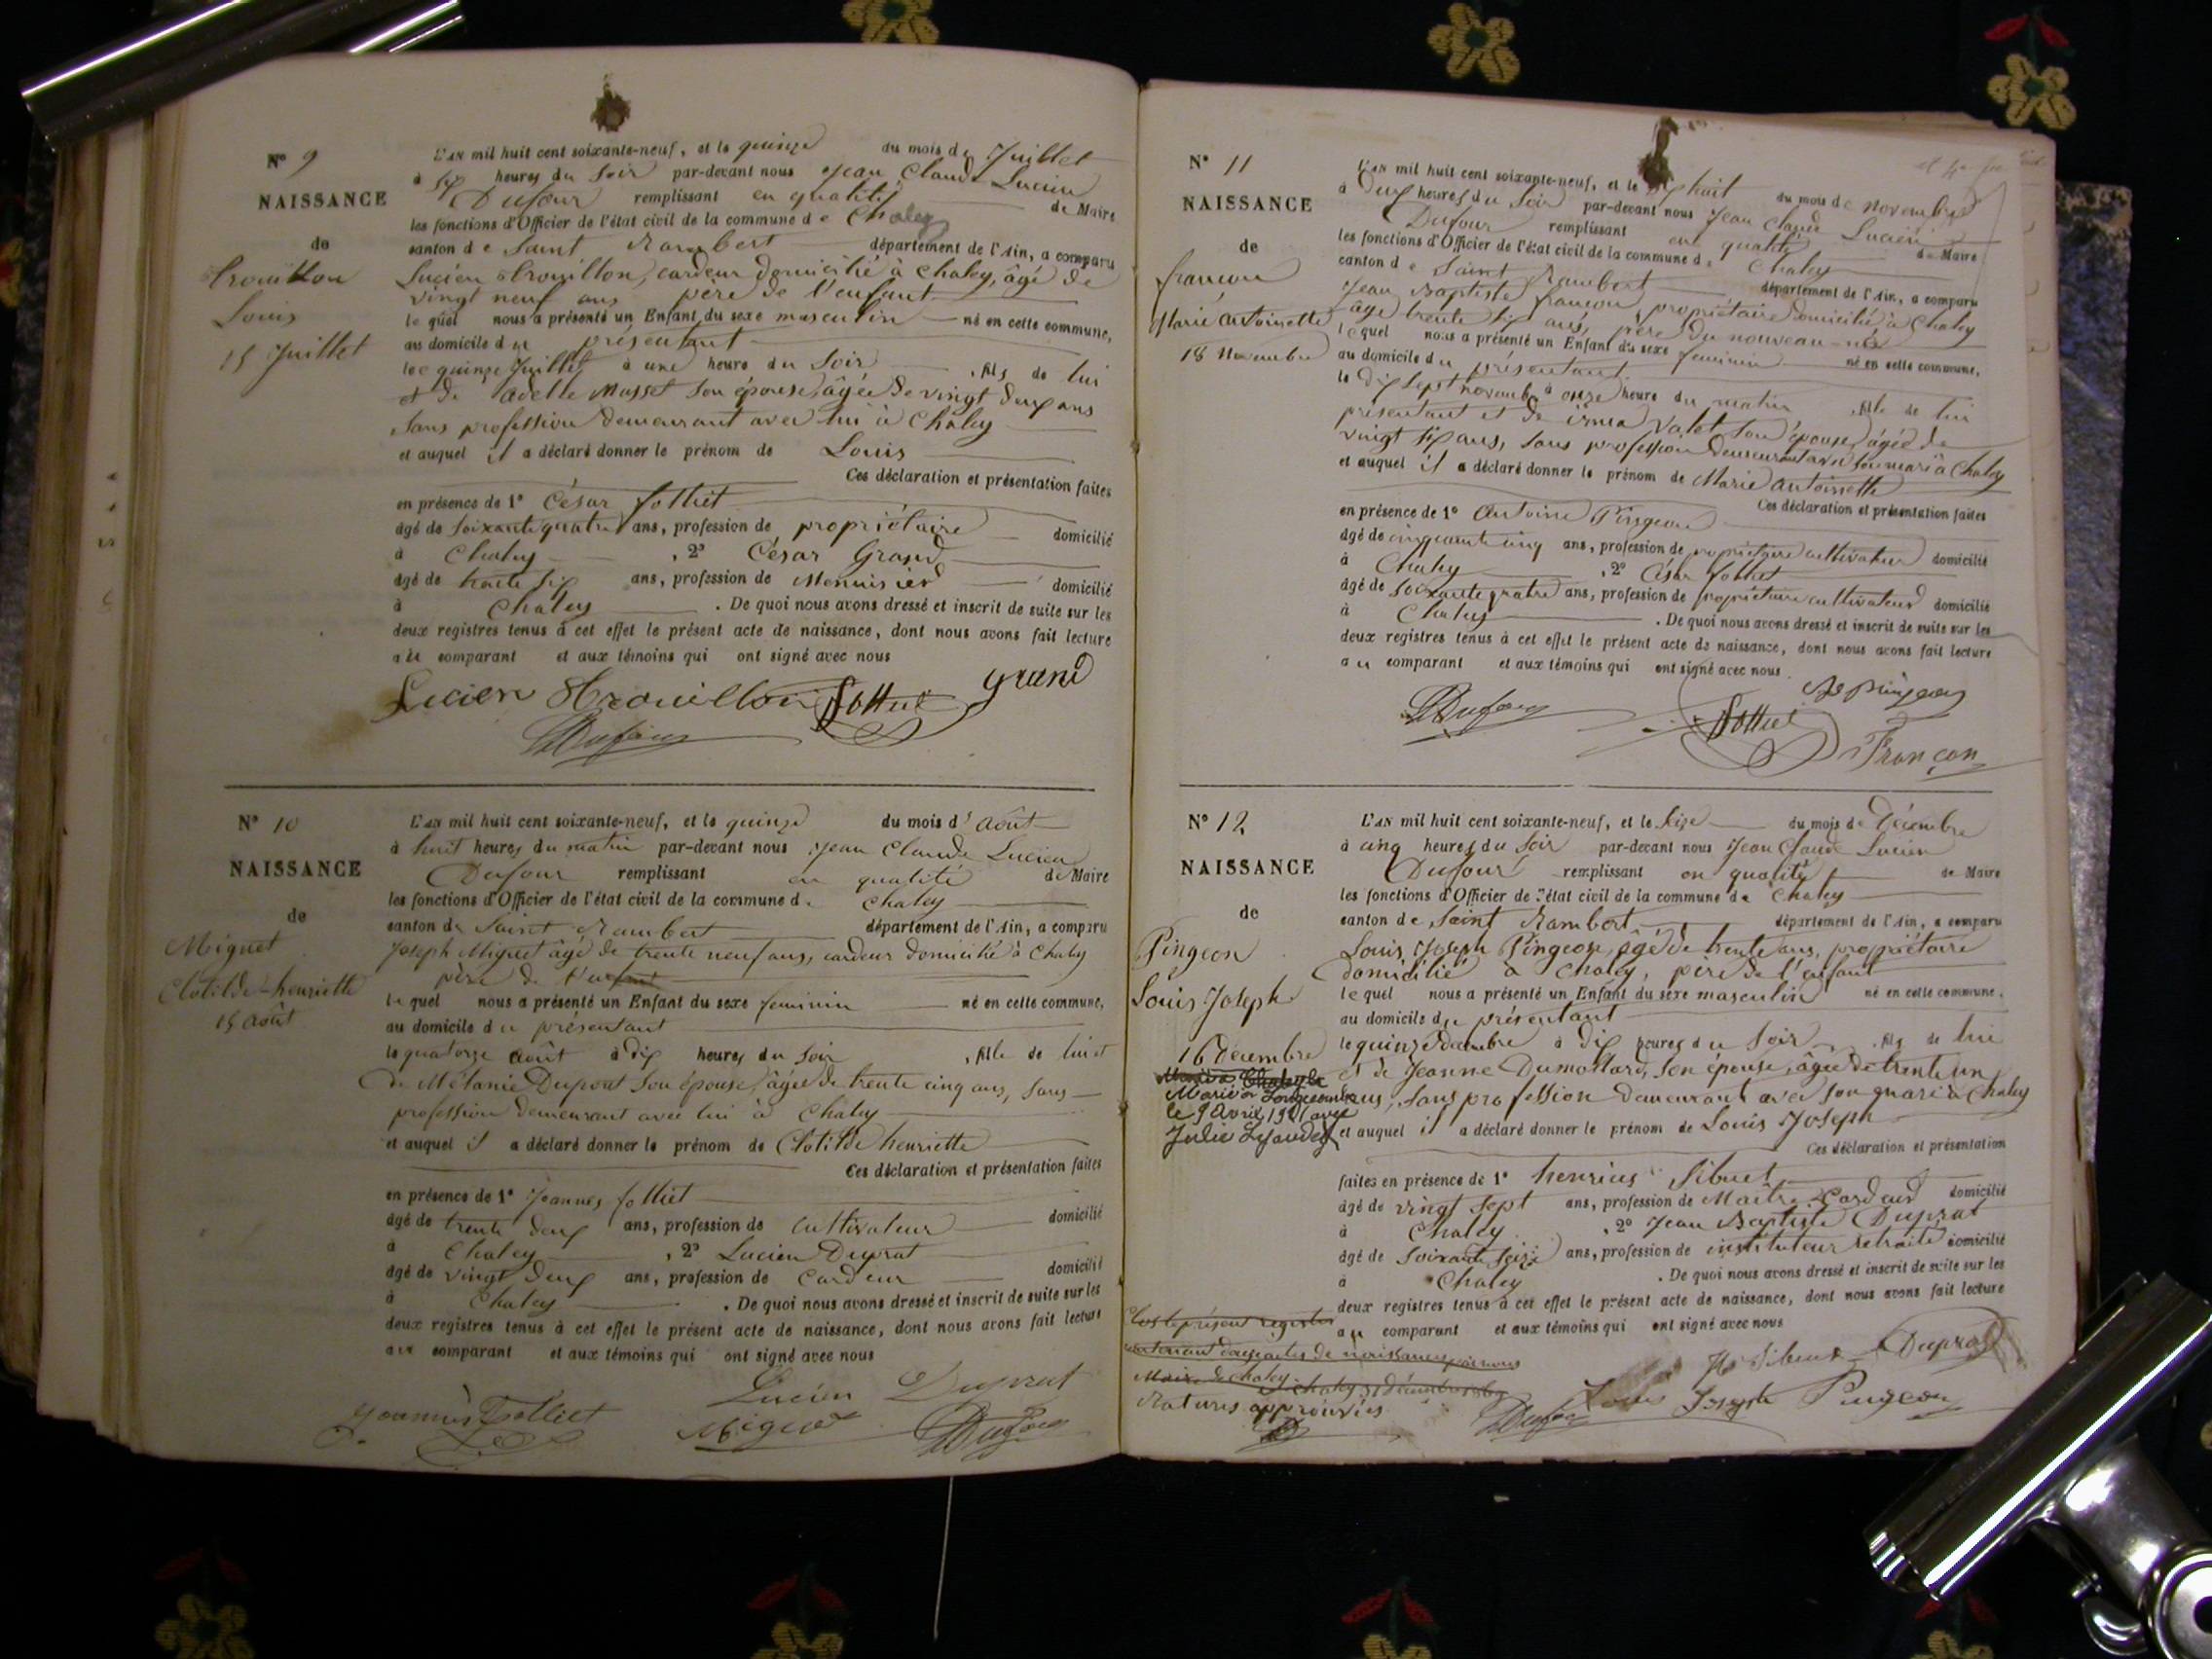 N° 9
NAISSANCE
de
Trouillon
Louis
15 Juillet
L'AN mil huit cent soixante-neuf, et le quinze du mois de Juillet
à six heures du soir par-devant nous Jean Claude Lucien
Dufour remplissant en qualité de Maire
les fonctions d'Officier de l'état civil de la commune de Chaley
canton de Saint Rambert département de l'Ain, a comparu
Lucien Trouillon, cardeur domicilié à Chaley, âgé de
vingt neuf ans père de l'enfant
lequel nous a présenté un Enfant du sexe masculin né en cette commune,
au domicile du présentant
le quinze Juillet à une heure du soir, fils de lui
et de Adelle Masset son épouse, âgée de vingt deux ans
sans profession demeurant avec lui à Chaley
et auquel il a déclaré donner le prénom de Louis
Ces déclaration et présentation faites
en présence de 1° César folliet
âgé de soixante quatre ans, profession de propriétaire domicilié
à Chaley, 2° César Grand
âgé de trente six ans, profession de Menuisier domicilié
à Chaley. De quoi nous avons dressé et inscrit de suite sur les
deux registres tenus à cet effet le présent acte de naissance, dont nous avons fait lecture
au comparant et aux témoins qui ont signé avec nous
Lucien Trouillon folliet grand
Dufour
N° 10
NAISSANCE
de
Miguet
Clotilde-henriette
15 Août
L'AN mil huit cent soixante-neuf, et le quinze du mois d'Août
à huit heures du matin par-devant nous Jean Claude Lucien
Dufour remplissant en qualité de Maire
les fonctions d'Officier de l'état civil de la commune de Chaley
canton de Saint Rambert département de l'Ain, a comparu
Joseph Miguet âgé de trente neuf ans, cardeur domicilié à Chaley
père de l'enfant
lequel nous a présenté un Enfant du sexe feminin né en cette commune,
au domicile du présentant
le quatorze août à dix heures du soir, fille de lui et
de Mélanie Dupont son épouse, âgée de trente cinq ans, sans
profession demeurant avec lui à Chaley
et auquel il a déclaré donner le prénom de Clotilde henriette
Ces déclaration et présentation faites
en présence de 1° Joannes folliet
âgé de trente deux ans, profession de cultivateur domicilié
à Chaley, 2° Lucien Duprat
âgé de vingt deux ans, profession de Cardeur domicilié
à Chaley. De quoi nous avons dressé et inscrit de suite sur les
deux registres tenus à cet effet le présent acte de naissance, dont nous avons fait lecture
au comparant et aux témoins qui ont signé avec nous
Lucien Duprat
Joannès Folliet Miguet Dufour
N° 11
NAISSANCE
de
françon
Marie Antoinette
18 Novembre
L'AN mil huit cent soixante-neuf, et le dix huit du mois de novembre
à deux heures du soir par-devant nous Jean Claude Lucien
Dufour remplissant en qualité de Maire
les fonctions d'Officier de l'état civil de la commune de Chaley
canton de Saint Rambert département de l'Ain, a comparu
Jean Baptiste françon, propriétaire domicilié à Chaley
âgé trente six ans, père du nouveau-né
lequel nous a présenté un Enfant du sexe feminin né en cette commune,
au domicile du présentant
le dix sept novembre à onze heure du matin, fille de lui
présentant et de irma Valet son épouse, âgée de
vingt six ans, sans profession demeurant avec son mari à Chaley
et auquel il a déclaré donner le prénom de Marie Antoinette
Ces déclaration et présentation faites
en présence de 1° Antoine Pingeon
âgé de cinquante cinq ans, profession de propriétaire cultivateur domicilié
à Chaley, 2° César folliet
âgé de soixante quatre ans, profession de propriétaire cultivateur domicilié
à Chaley. De quoi nous avons dressé et inscrit de suite sur les
deux registres tenus à cet effet le présent acte de naissance, dont nous avons fait lecture
au comparant et aux témoins qui ont signé avec nous
Pingeon
Dufour folliet
Françon
N° 12
NAISSANCE
de
Pingeon
Louis Joseph
16 Décembre
Marié à Chaley le
Marié à
le 9 Avril 1901 avec
Julie
L'AN mil huit cent soixante-neuf, et le seize du mois de Décembre
à cinq heures du soir par-devant nous Jean Claude Lucien
Dufour remplissant en qualité de Maire
les fonctions d'Officier de l'état civil de la commune de Chaley
canton de Saint Rambert, département de l'Ain, a comparu
Louis Joseph Pingeon, âgé de trente ans, propriétaire
domicilié à Chaley, père de l'enfant
lequel nous a présenté un Enfant du sexe masculin né en cette commune,
au domicile du présentant
le quinze décembre à dix heures du soir, fils de lui
et de Jeanne Dumollard, son épouse, âgée de trente un
ans, sans profession demeurant avec son mari à Chaley
et auquel il a déclaré donner le prénom de Louis Joseph
Ces déclaration et présentation
faites en présence de 1° henrius Sibuet
âgé de vingt sept ans, profession de Maître Cardeur domicilié
à Chaley, 2° Jean Baptiste Duprat
âgé de soixante seize ans, profession de instituteur retraité domicilié
à Chaley. De quoi nous avons dressé et inscrit de suite sur les
deux registres tenus à cet effet le présent acte de naissance, dont nous avons fait lecture
au comparant et aux témoins qui ont signé avec nous
Clos le présent registre
contenant douze actes de naissances par nous
Maire de Chaley
Ratures approuvées
Sibuet Duprat
Dufour Louis Joseph Pingeon